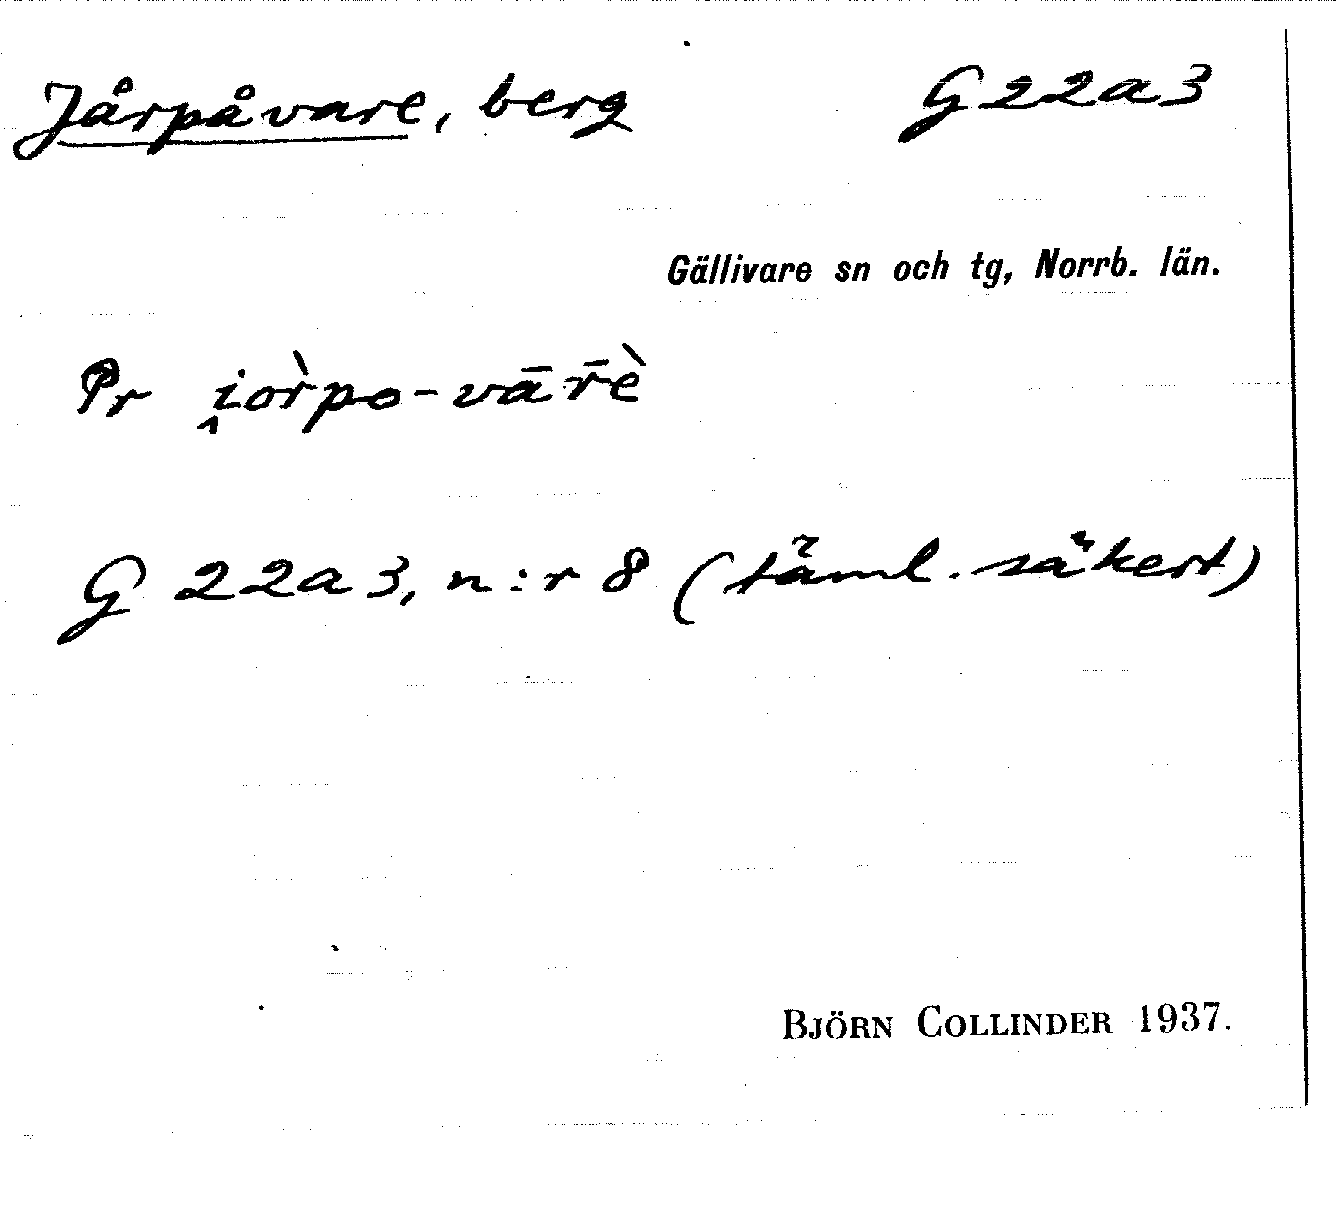 Jårpåvare, berg G22a3
Gällivare sn och tg, Norrb. län.
Pr i̭or̀po-vār̄è
G 22a3, n:r 8 (täml. säkert)
BJÖRN COLLINDER 1937.